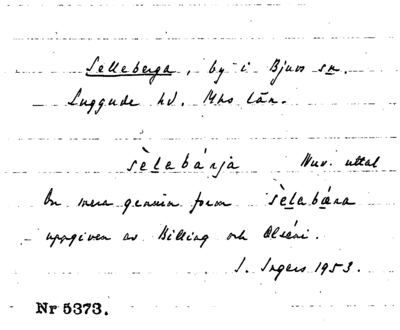 Selleberga, by i Bjuvs sn.
Luggude hd. Mhs län.
sèlebánja Nuv. uttal
En mera genuin form sèlabæna
uppgiven av Billing och Olséni.
I. Ingers 1953.
Nr 5373.